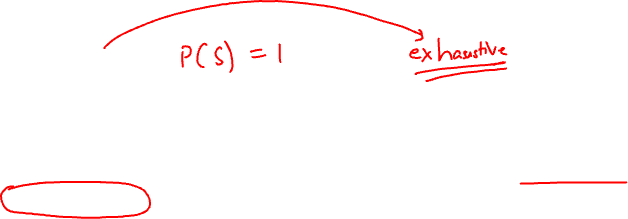 P(S) = 1 exhaustive